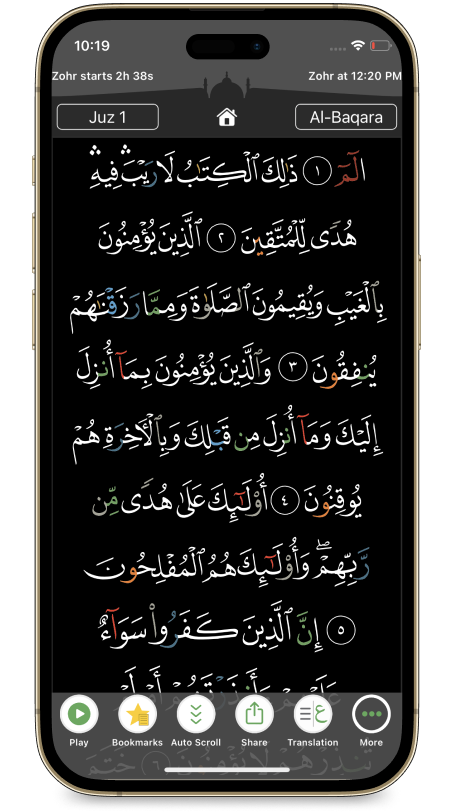 10:19
Zohr starts 2h 38s
Zohr at 12:20 PM
Juz 1
Al-Baqara
الٓمٓ ١ ذَٰلِكَ ٱلْكِتَٰبُ لَا رَيْبَ ۛ فِيهِ ۛ
هُدًى لِّلْمُتَّقِينَ ٢ ٱلَّذِينَ يُؤْمِنُونَ
بِٱلْغَيْبِ وَيُقِيمُونَ ٱلصَّلَوٰةَ وَمِمَّا رَزَقْنَٰهُمْ
يُنفِقُونَ ٣ وَٱلَّذِينَ يُؤْمِنُونَ بِمَآ أُنزِلَ
إِلَيْكَ وَمَآ أُنزِلَ مِن قَبْلِكَ وَبِٱلْءَاخِرَةِ هُمْ
يُوقِنُونَ ٤ أُو۟لَٰٓئِكَ عَلَىٰ هُدًى مِّن
رَّبِّهِمْ ۖ وَأُو۟لَٰٓئِكَ هُمُ ٱلْمُفْلِحُونَ
٥ إِنَّ ٱلَّذِينَ كَفَرُوا۟ سَوَآءٌ
Play
Bookmarks
Auto Scroll
Share
Translation
More